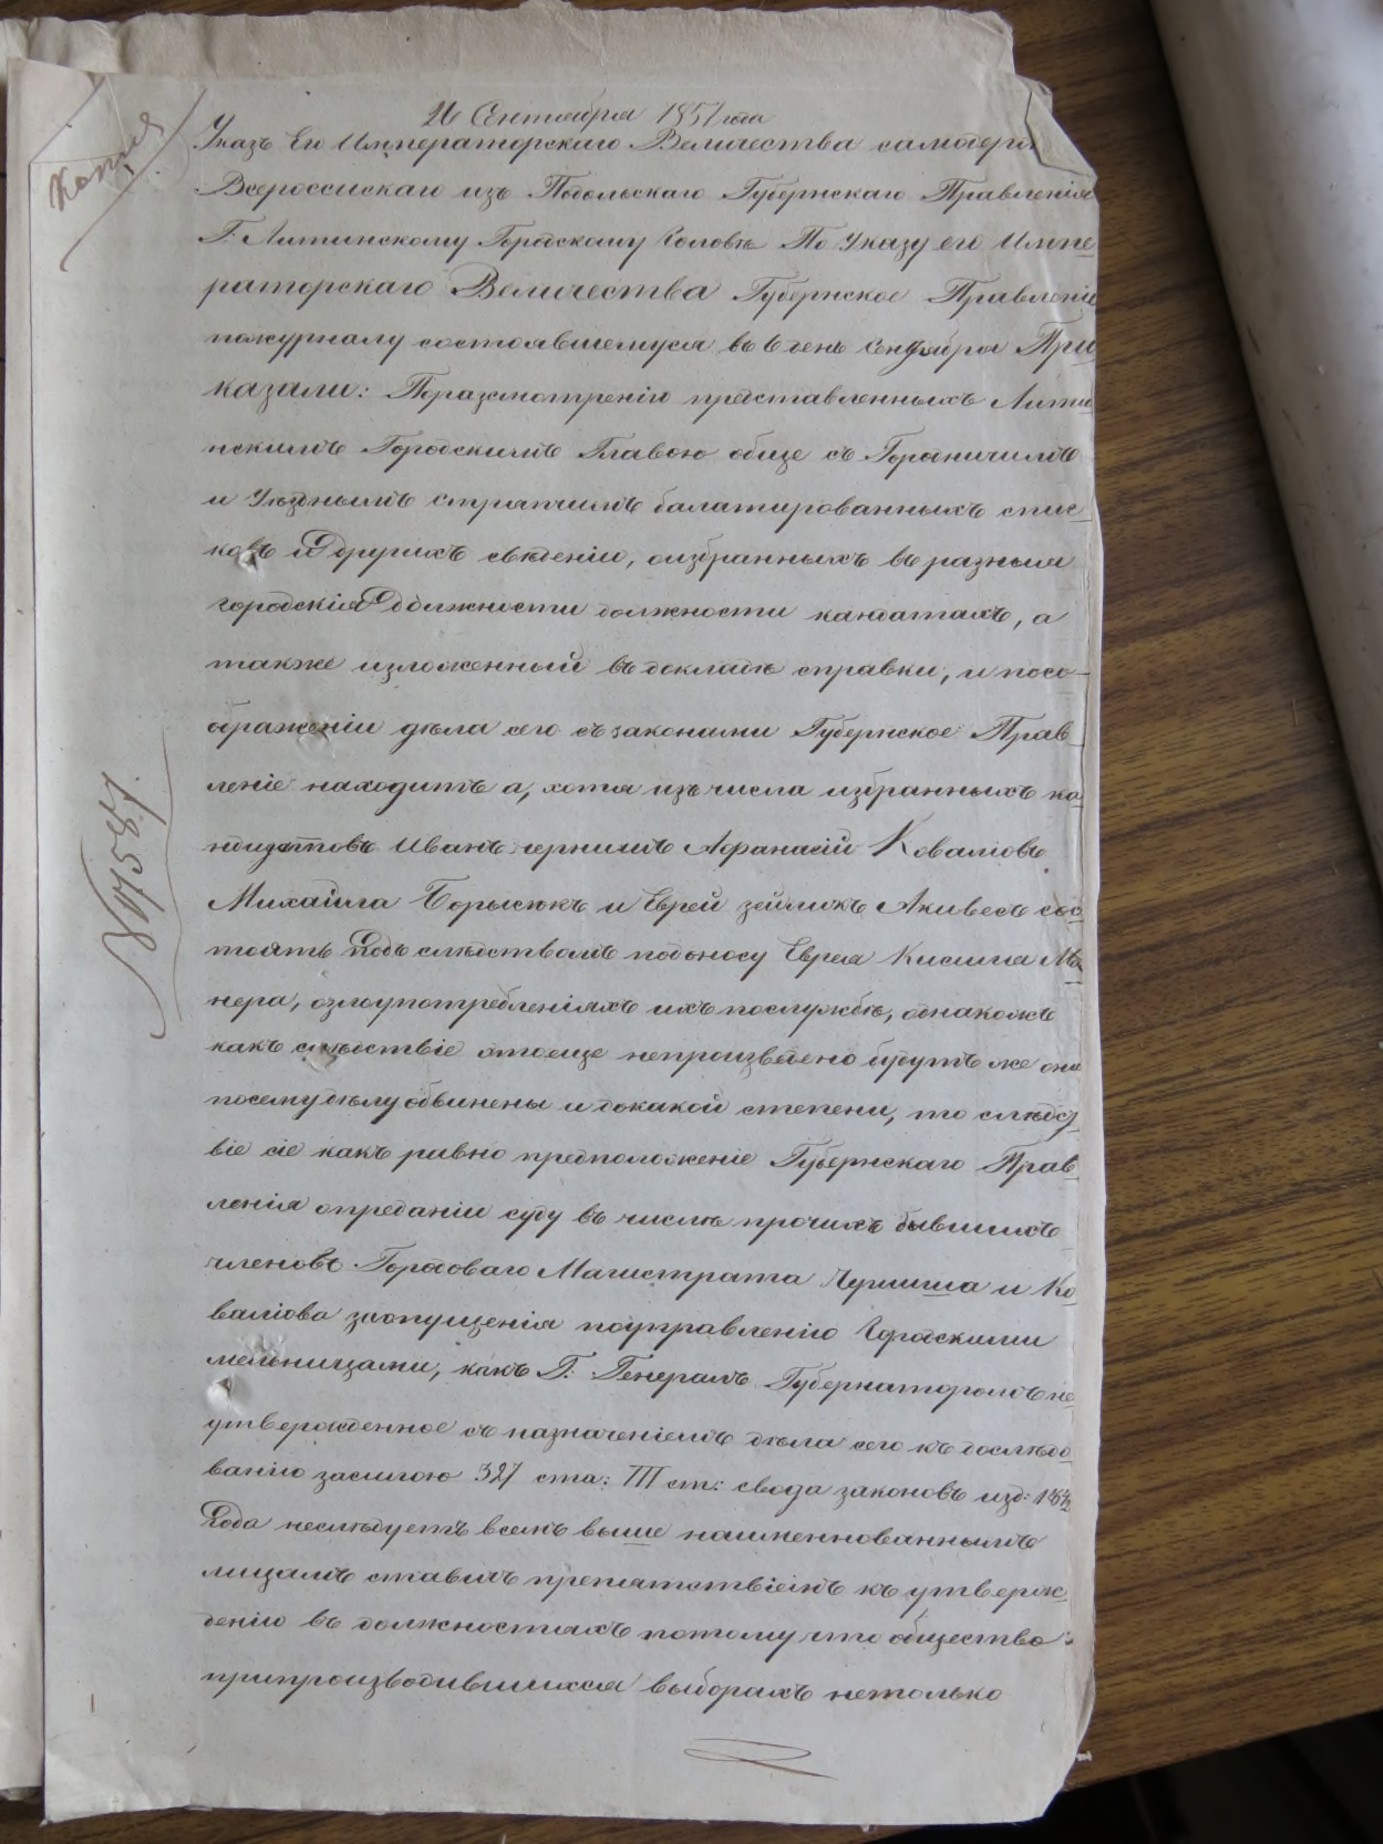 Копия
26 Сентября 1851 года
Указъ Его Императорскаго Величества самодерж
Всероссискаго изъ Подольскаго Губернскаго Правленія
Г. Литинскому Городскому Головѣ По Указу его Импе
раторскаго Величества Губернское Правленіе
пожурналу состоявшемуся въ 6 день Сентября При
казали: Поразсмотренію представленныхъ Лити
нскимъ Городскимъ Главою обще съ Городничимъ
и Уѣзднымъ стряпчимъ балатированныхъ спис
ковъ и другихъ свѣденіи, оизбранныхъ въ разныя
городскія должности должности кандатахъ, а
также изложенный въ докладѣ справки, и посо-
ображеніи дѣла сего съ законами Губернское Прав
леніе находитъ а, хотя изъ числа избранныхъ ка
ндидатовъ Иванъ чернишъ Афанасій Коваліовъ
Михаила Борысюкъ и Еврей зейликъ Акивесъ сос
тоятъ подъ слѣдствомъ подоносу Еврея Кисиля Ма
нера, озлоупотребленіяхъ ихъ послужбѣ, однакожъ
какъ слѣдствіе этоеще непроизведено будутъ же они
посемудѣлу обвинены и докакой степени, то слѣдс
віе сіе какъ равно предположеніе Губернскаго Прав
ленія опреданіи суду въ числѣ прочихъ бывшихъ
членовъ Городоваго Магистрата Черниша и Ко
валіова заопущенія поуправленію Городскими
мельницами, какъ Г. Генералъ Губернаторомъ не
утвержденное съ назначеніемъ дѣла сего къ дослѣдо
ванію засилою 327 ста: III ст: свода законовъ изд: 1842
Года неслѣдуетъ всемъ выше наименнованнымъ
лицамъ ставить препятствіемъ къ утверж
денію въ должностяхъ потому что общество
припроизводившихся выборахъ нетолько